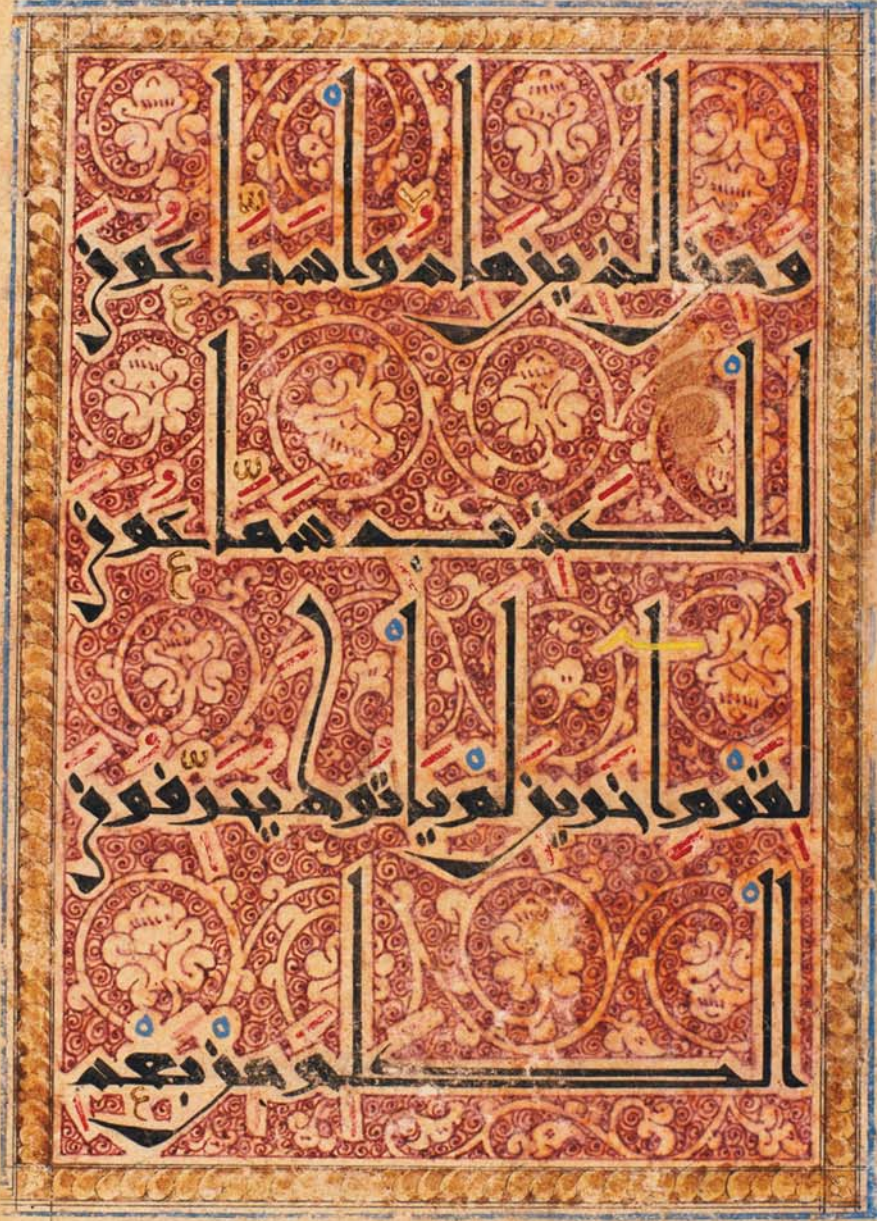 ومن الذين هادوا سماعون
للكذب سماعون
لقوم اخرين لم ياتوك يحرفون
الكلم من بعد